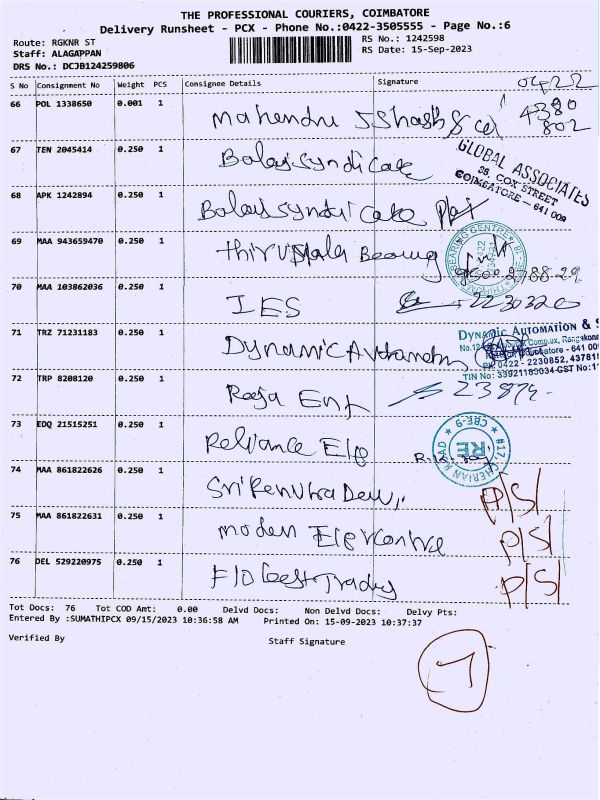 THE PROFESSIONAL COURIERS, COIMBATORE
Delivery Runsheet - PCX - Phone No.:0422-3505555 - Page No.:6
Route: RGKNR ST
RS No.: 1242598
Staff: ALAGAPPAN
RS Date: 15-Sep-2023
DRS No.: DCJB124259806
S No Consignment No Weight PCS Consignee Details Signature
0422
66 POL 1338650 0.001 1 Mahendra
4380
802
67 TEN 2045414 0.250 1 Balaji Syndicate
GLOBAL ASSOCIATES
COX STREET
COIMBATORE - 641 009
68 APK 1242894 0.250 1 Balaji Syndicate
69 MAA 943659470 0.250 1 Thirumala Bearing
BEARING CENTRE
70 MAA 103862036 0.250 1 IES
2230320
71 TRZ 71231183 0.250 1 Dynamic Automation
DYNAMIC AUTOMATION & S
PH: 0422 - 2230852, 43781
TIN No: 33921183034 CST No:11
72 TRP 8208120 0.250 1 Raja Ent
73 EDQ 21515251 0.250 1 Reliance Ele
#17, CHERIAN ROAD ★ CBE-9 ★
RE
74 MAA 861822626 0.250 1 Sri Renuka Devi
P/S/
75 MAA 861822631 0.250 1 Modern Ele Centre
P/S/
76 DEL 529220975 0.250 1
P/S/
Tot Docs: 76 Tot COD Amt: 0.00 Delvd Docs: Non Delvd Docs: Delvy Pts:
Entered By :SUMATHIPCX 09/15/2023 10:36:58 AM Printed On: 15-09-2023 10:37:37
Verified By Staff Signature
7